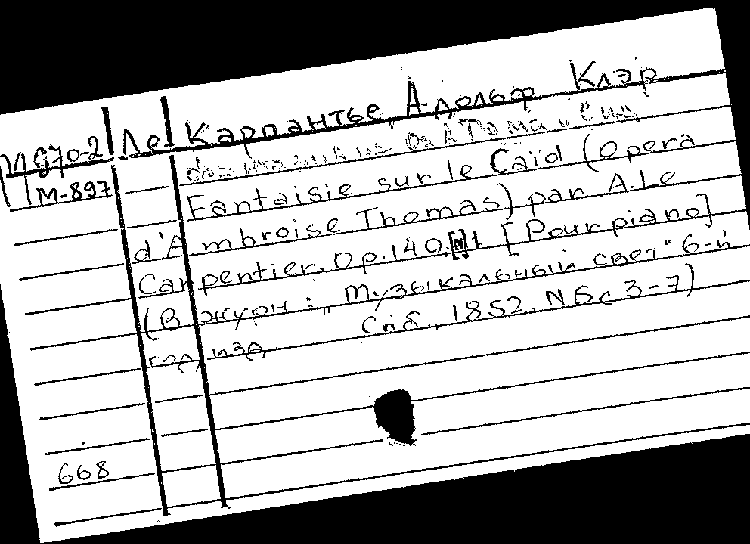 М970-2 Ле Карпантье, Адольф Клэр
М-897
Fantaisie sur le Caïd (opera
d'Ambroise Thomas) par A. Le
Carpentier. Op. 140. [Pour piano]
(В журн: „Музыкальный свет" 6-й
год изд. Спб., 1852. N 5 с 3-7)
668